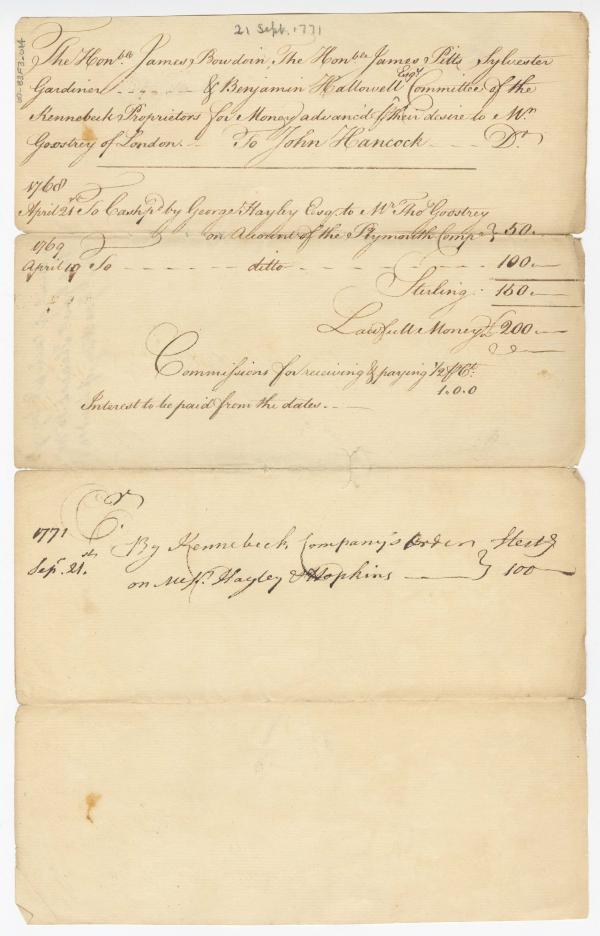 21 Sept. 1771
The Honble James Bowdoin, The Honble James Pitts Sylvester
Gardiner - - - - - & Benjamin Hallowell Esqr Committee of the
Kennebeck Proprietors for Money advanced their desire to Mr
Goostrey of London. - To John Hancock - Dr
1768
April 21st To Cash pd by George Hayley Esq to Mr Thos Goostrey
on Account of the Plymouth Compa } 50. -
1769
April 19 To - - - - - - ditto - - - - - - 100 -
Sterling. 150 -
Lawfull Money £200 -
Commissions for receiving & paying 1/2 Ct
1.0.0
Interest to be paid from the dates. -
Cr
1771
Sepr. 21st. By Kennebeck Company's Order Sterlg
on Messrs. Hayley & Hopkins - } 100 -